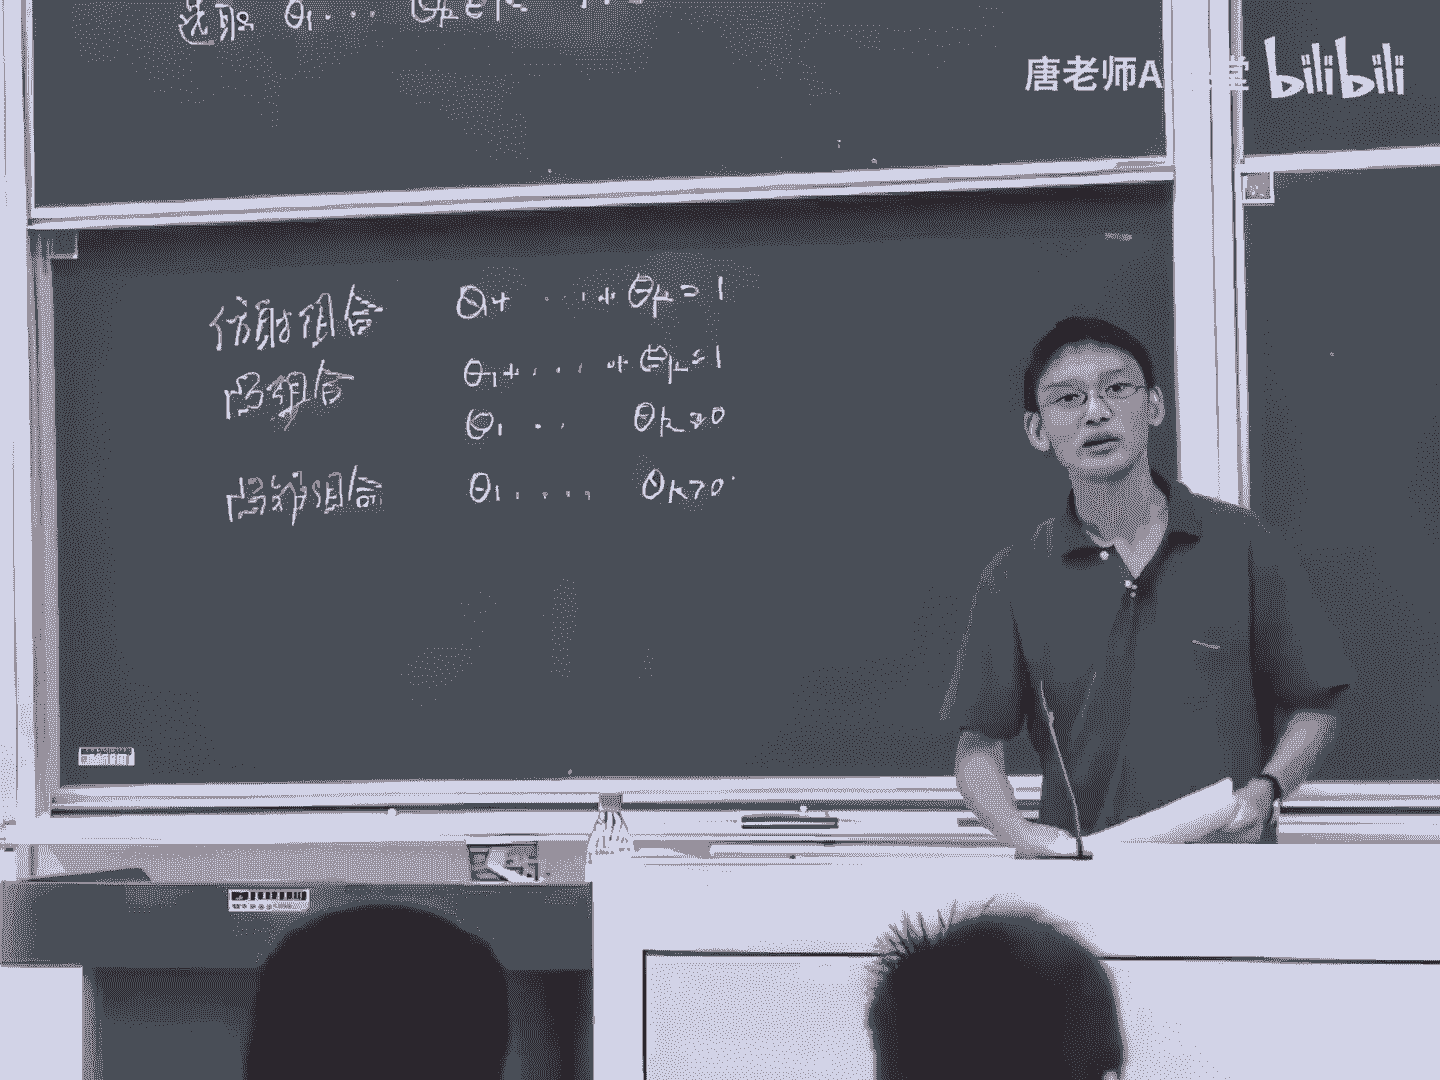 选取 θ₁ ...
唐老师A 堂 bilibili
仿射组合 θ₁+ ... + θk = 1
凸组合 θ₁+ .... + θk = 1
θ₁ ... θk ≥ 0
凸锥组合 θ₁ .... θk ≥ 0